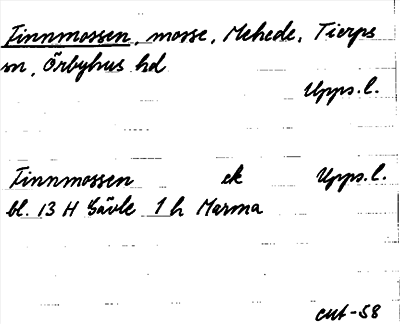 Finnmossen, mosse, Mehede, Tierps
sn, Örbyhus hd
Upps.l.
Finnmossen ek Upps.l.
bl. 13 H Gävle 1 h Marma
cut-58